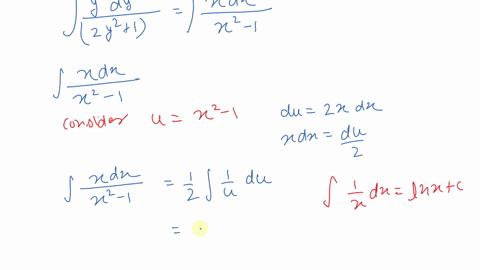 ∫ y dy / (2y²+1) = ∫ x dx / x²-1
∫ x dx / x²-1
consider u = x²-1
du = 2x dx
x dx = du/2
∫ x dx / x²-1 = 1/2 ∫ 1/u du
∫ 1/x dx = ln x + c
=